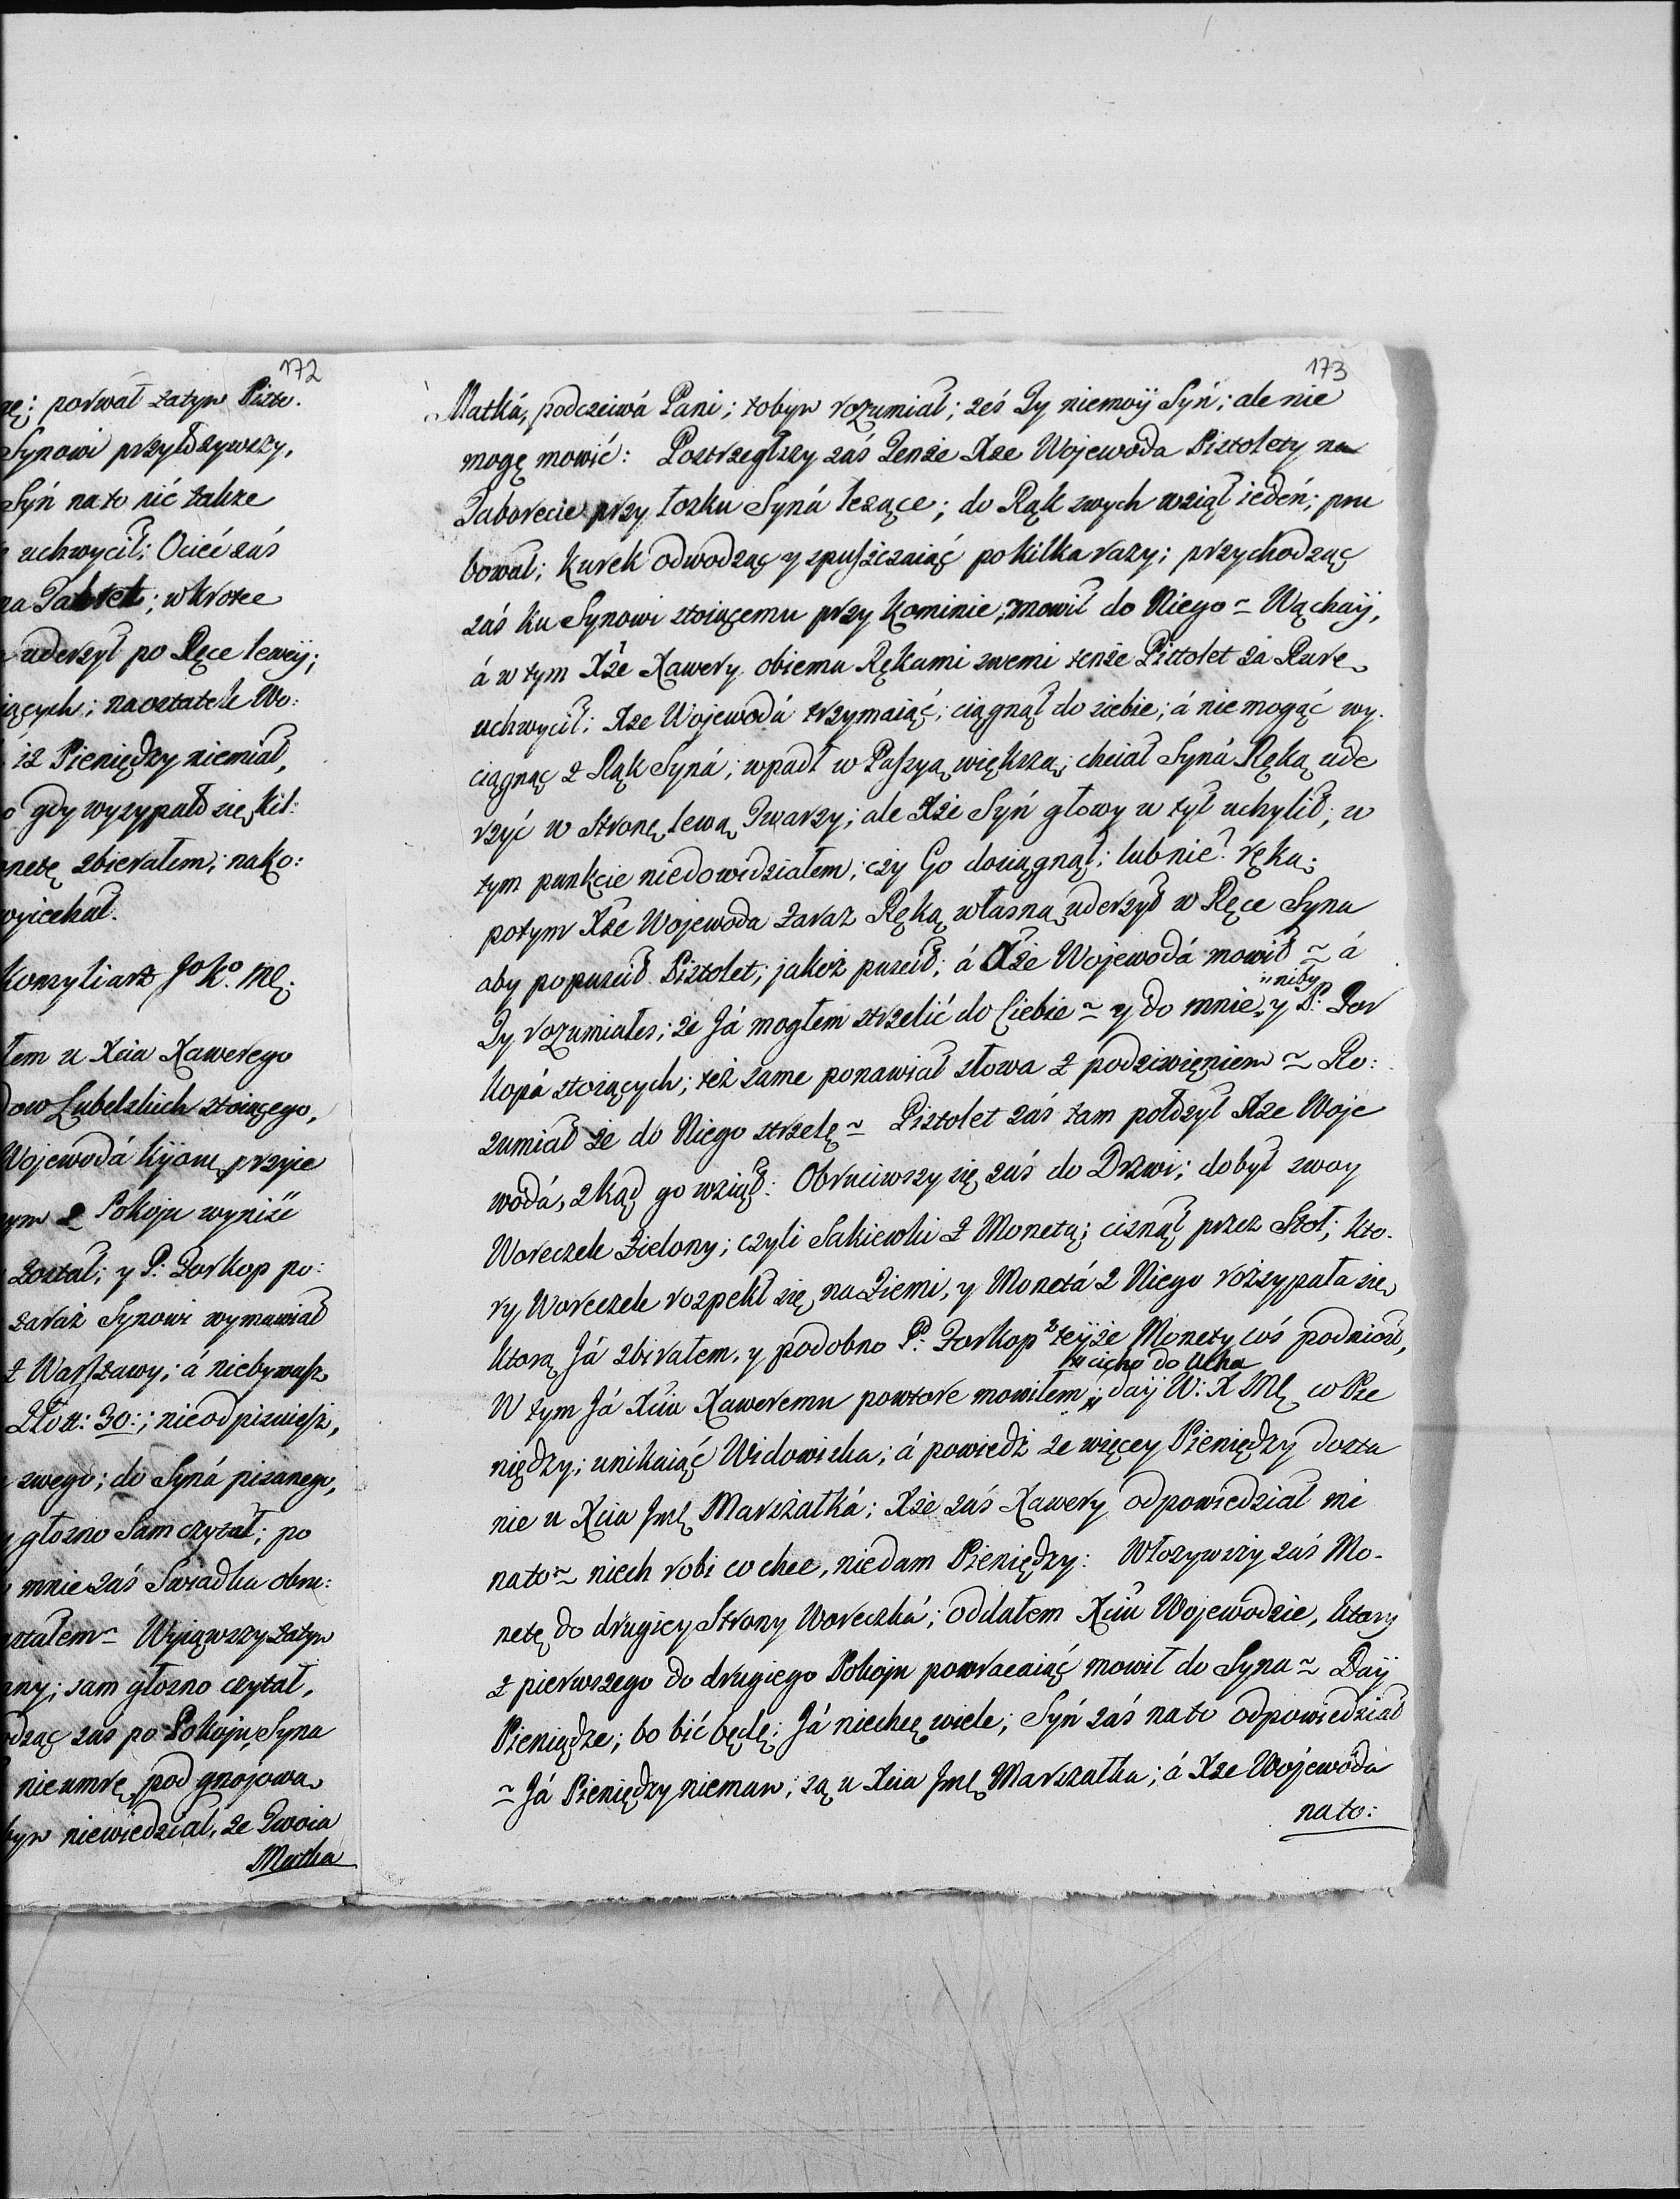 172
porwał zatym Pisto.
Synowi przyłożywszy,
Syń na to nić także
uchwycił; Ocieć zaś
na Taboret; wkrotce
uderzył po Ręce lewey;
iących; naostatek Wo:
iz Pieniędzy niemiał,
gdy wysypało się kil:
netę zbierałem; nako:
wyiechał.
Konsyliarz JoKo. Mć;
łem u Xcia Xawerego
dow Lubelskich stoiącego,
Wojewodá Kijows. przyie
ym z Pokoju wyniść
został; y P: Forkop po:
zaraz Synowi wymawiał
z Warszawy; á niebywasz
Zło tt: 30:; nieodpisuiesz,
swego; do Syná pisanego,
głosno Sam czytał; po
mnie zaś Swiadka obru:
stałem ~ Wyiąwszy zatym
any; sam głosno czytał,
odząc zas po Pokoju, Syna
nie umrę, pod gnojową
bym niewiedział, ze Twoia
Matka
173
Matká, podcziwá Pani; tobym rozumiał;ześ Ty niemoÿ Syń; ale nie
mogę mowić: Postrzegłszy zaś Tenże Xże Wojewoda Pistolety na
Taborecie przy łozku Syná lezące; do Rąk swych wziął ieden; pru
bował; Kurek odwodząc y spuszczaiąć po kilka razy; przychodząc
zaś ku Synowi stoiącemu przy Kominie; mowił do Niego ~ Wąchaÿ,
á w tym Xże Xawery obiema Rękami swemi tenże Pistolet za Rurę
uchwycił; Xże Wojewodá trzymaiąć; ciągnął do siebie; á nie mogąć wy.
ciągnąć z Rąk Syná; wpadł w Passyą większą; chciał Syná Ręką ude
rzyć w Stronę lewą Twarzy; ale Xże Syń głowy w tył uchylił; w
tym punkcie niedowidziałem; czy Go dosiągnął; lub nie? ręką;
potym Xże Wojewoda zaraz Ręką własną uderzył w Ręce Syna
aby popuscił Pistolet; jakoż puscił; á Xże Wojewodá mowił ~ á
Ty rozumiałes; że Já mogłem strzelić do Ciebie ~ y do mnie "niby y P: For
kopá stoiących; też same ponawiał słowa z podziwięniem ~ Ro:
zumiał że do Niego strzelę ~ Pistolet zaś tam połozył Xże Woje
wodá, zkąd go wziął: Obruciwszy się zaś do Drzwi; dobył swoy
Woreczek Zielony; czyli Sakiewki z Monetą; cisnął przez Stoł; kto.
ry Woreczek rospękł się, na Ziemi, y Monetá z Niego rozsypała się
ktorą Já zbirałem, y podobno P: Forkop z teÿze Monety coś podniosł,
W tym Já Xciu Xaweremu powtore mowiłem; cicho do Ucha daÿ W: X Mć co Pie
niędzy; unikaiąć Widowiska; á powiedź ze więcey Pieniędzy dosta
nie u Xcia Jmć Marszałká; Xże zaś Xawery odpowiedział mi
nato ~ niech robi co chce, niedam Pieniędzy: Włozywszy zaś Mo-
netę do drugiey Strony Woreczká; oddałem Xciu Wojewodzie, ktory
z pierwszego do drugiego Pokoju powracaiąć mowił do Syna ~ Daÿ
Pieniądze; bo bić będę; Já niechcę wiele; Syń zaś na to odpowiedział
~ Já Pieniędzy niemam; są u Xcia Jmć Marszałka; á Xże Wojewoda
nato: